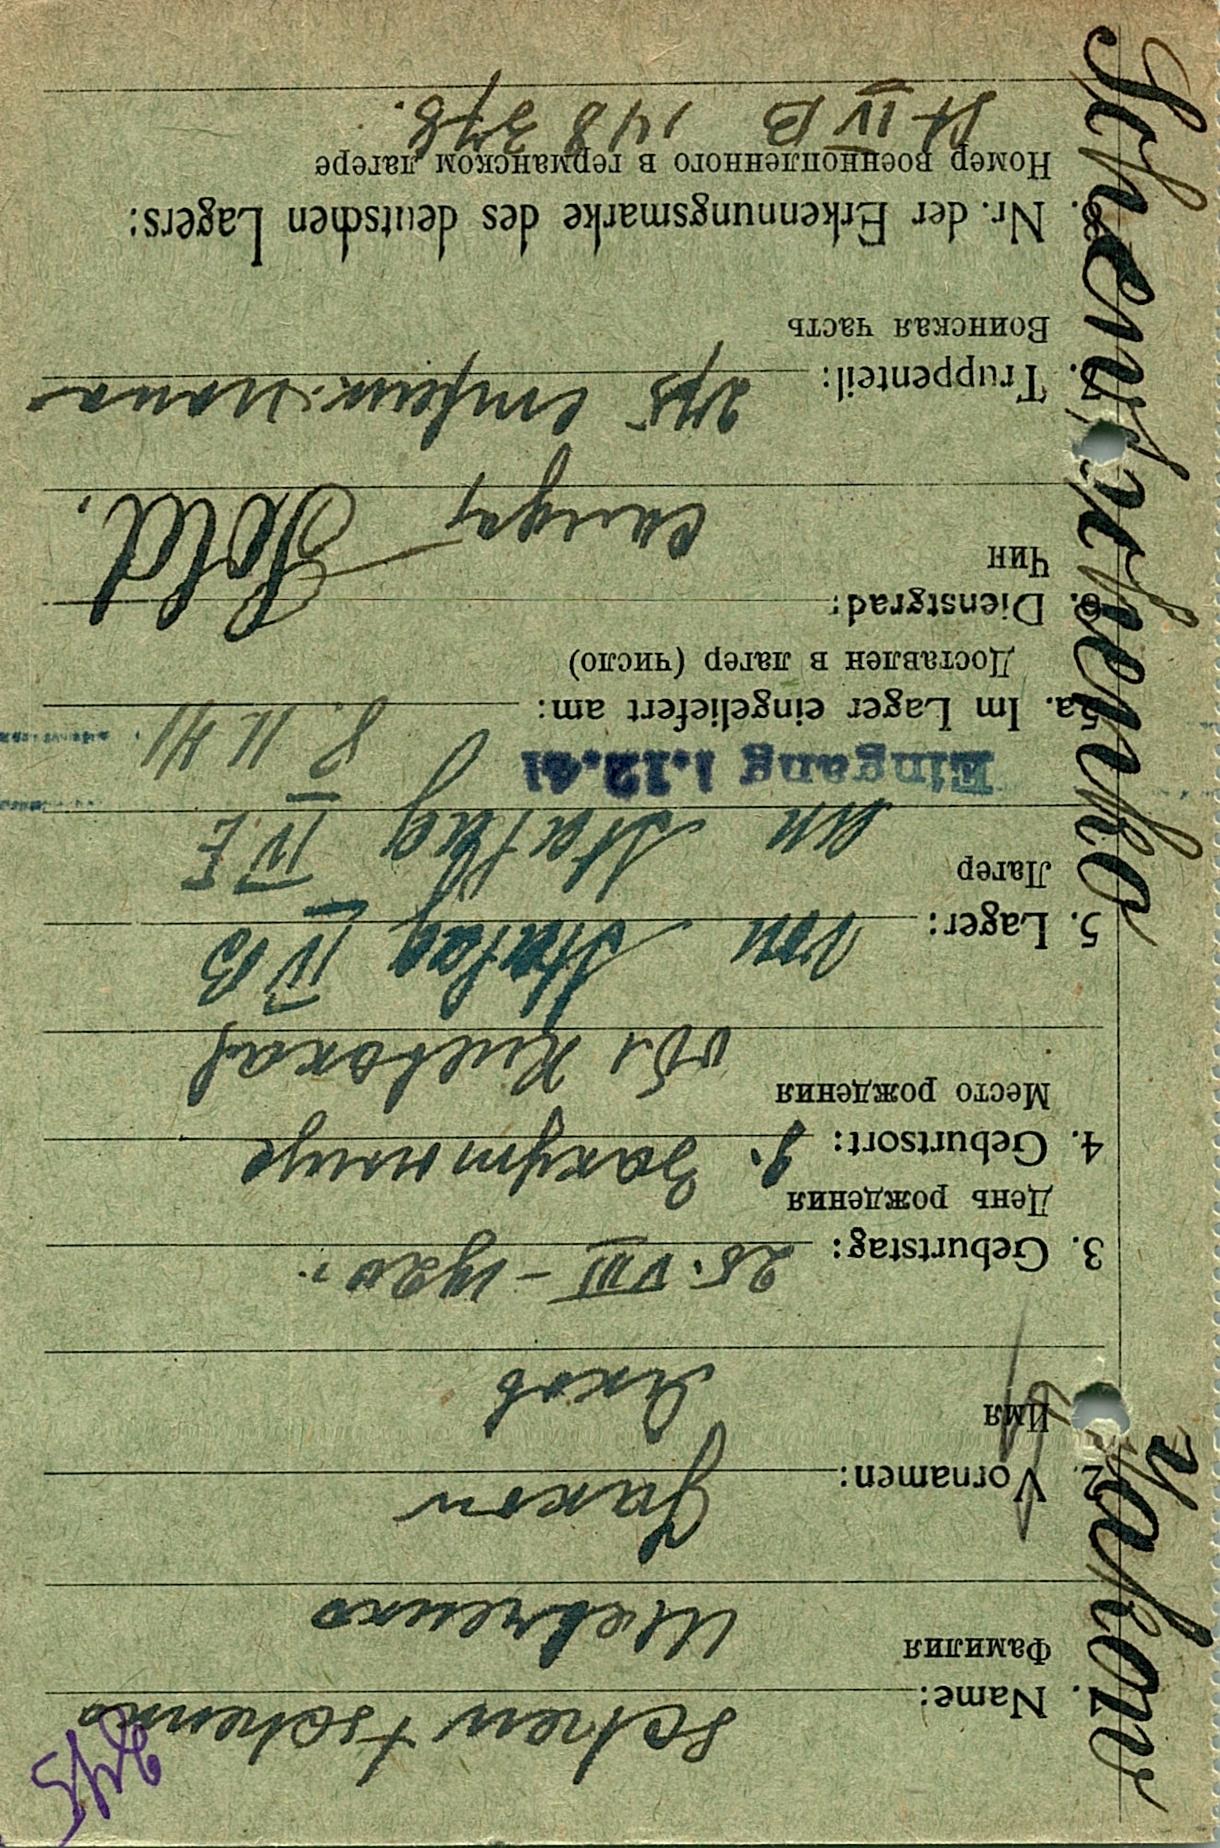 Schewtschenko Jakow
1. Name: Schewtschenko
Фамилия Шевченко
2. Vornamen: Jakow
Имя Яков
3. Geburtstag: 25. VIII – 1920.
День рождения
4. Geburtsort: g.
Место рождения обл Киевская
5. Lager: von Stalag IV B
Лагер an Stalag IV E
Eingang 1.12.41
5a. Im Lager eingeliefert am: 8. 11 41
Доставлен в лагер (число)
6. Dienstgrad: Sold.
Чин солдат
7. Truppenteil:
Воинская часть
8. Nr. der Erkennungsmarke des deutschen Lagers:
Номер военнопленного в германском лагере
St IV B 148 378.